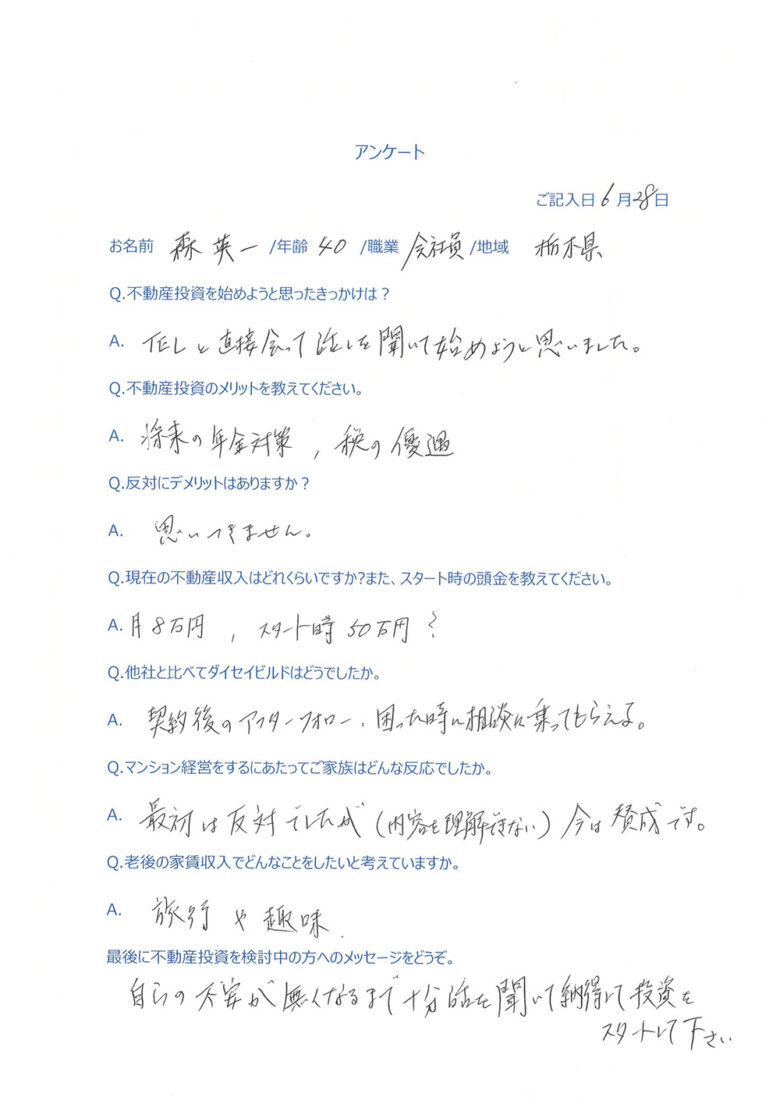 アンケート
ご記入日 6月28日
お名前 森 英一 /年齢 40 /職業 会社員 /地域 栃木県
Q.不動産投資を始めようと思ったきっかけは？
A. TELと直接会って話しを聞いて始めようと思いました。
Q.不動産投資のメリットを教えてください。
A. 将来の年金対策，税の優遇
Q.反対にデメリットはありますか？
A. 思いつきません。
Q.現在の不動産収入はどれくらいですか?また、スタート時の頭金を教えてください。
A. 月8万円，スタート時50万円？
Q.他社と比べてダイセイビルドはどうでしたか。
A. 契約後のアフターフォロー、困った時に相談に乗ってもらえる。
Q.マンション経営をするにあたってご家族はどんな反応でしたか。
A. 最初は反対でしたが（内容を理解できない）今は賛成です。
Q.老後の家賃収入でどんなことをしたいと考えていますか。
A. 旅行や趣味．
最後に不動産投資を検討中の方へのメッセージをどうぞ。
自らの不安が無くなるまで十分話を聞いて納得して投資を
スタートして下さい